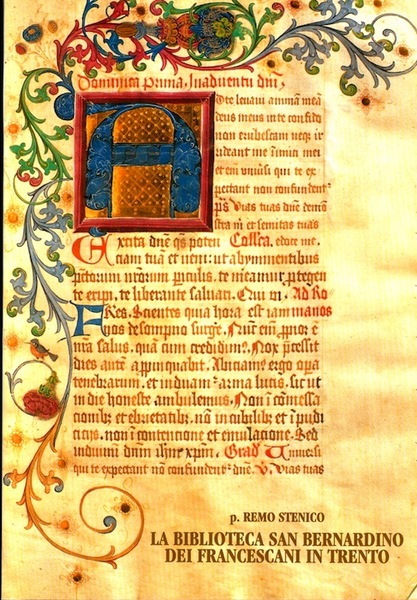 Dominica Prima. In adventu dni.
Dte levavi animam mea
deus meus in te confido
non erubescam neqz ir
rideant me inimici mei
et em univsi qui te ex
pectant non confundent
ps Vias tuas dne demon
stra m et semitas tuas
Excita dne qs poten Collca. ciam tuam et veni: ut ab ymminentibus
pctorum nrorum periculis. te meamur p tegen
te eripi, te liberante salvari. Qui vi. Ad Ro
Fres. Scientes quia hora est iam manos
nos de sompno surge. Nuc em, prior e
nra salus. qua cum credidim. Nox pcessit
dies aute appinquabit. Abiciam ergo opa
tenebrarum. et induam arma lucis. sic ut
in die honeste ambulemus. Non i comessa
cionibz et ebrietatibz. no in cubilibz et i pudi
citijs. non i contencione et emulacione. Sed
induimi dnm ihm xpm. Grad Universi
qui te expectant no confundent dne. V. Vias tuas
p. REMO STENICO
LA BIBLIOTECA SAN BERNARDINO
DEI FRANCESCANI IN TRENTO